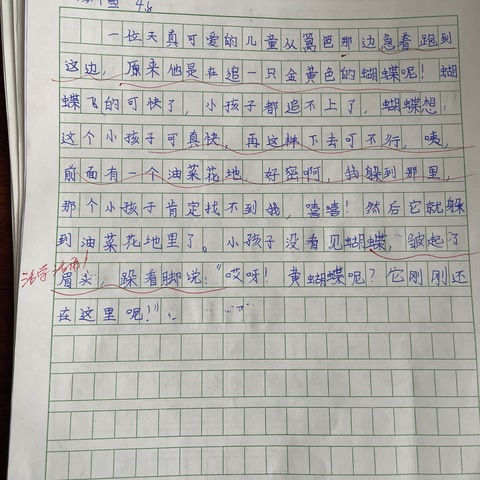 一位天真可爱的儿童从篱笆那边急着跑到
这边，原来他是在追一只金黄色的蝴蝶呢！蝴
蝶飞的可快了，小孩子都追不上了，蝴蝶想：
这个小孩子可真快，再这样下去可不行，咦，
前面有一个油菜花地，好密啊，我躲到那里，
那个小孩子肯定找不到我，嘻嘻！然后它就躲
到油菜花地里了。小孩子没看见蝴蝶，皱起了
眉头，跺着脚说：“哎呀！黄蝴蝶呢？它刚刚还
在这里呢！”